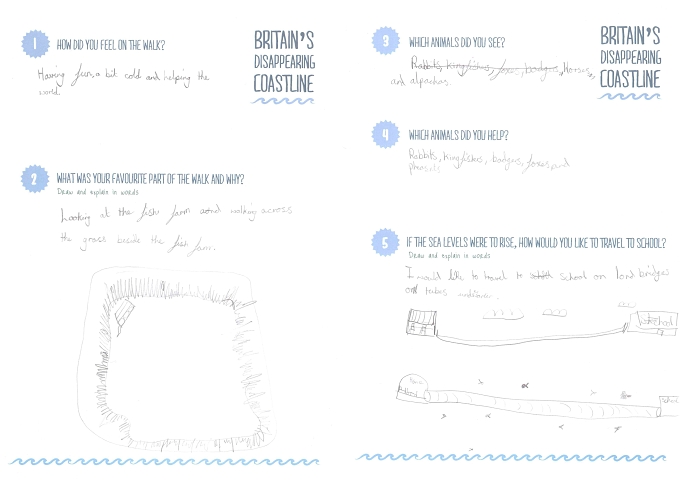 1 HOW DID YOU FEEL ON THE WALK?
BRITAIN'S
DISAPPEARING
COASTLINE
Having fun, a bit cold and helping the
world.
2 WHAT WAS YOUR FAVOURITE PART OF THE WALK AND WHY?
Draw and explain in words
Looking at the fish farm and walking across
the grass beside the fish farm.
3 WHICH ANIMALS DID YOU SEE?
BRITAIN'S
DISAPPEARING
COASTLINE
Rabbits, kingfishers, foxes, badgers, Horses,
and alpachas.
4 WHICH ANIMALS DID YOU HELP?
Rabbits, kingfishers, badgers, foxes and
5 IF THE SEA LEVELS WERE TO RISE, HOW WOULD YOU LIKE TO TRAVEL TO SCHOOL?
Draw and explain in words
I would like to travel to school on land bridges
or tubes
School